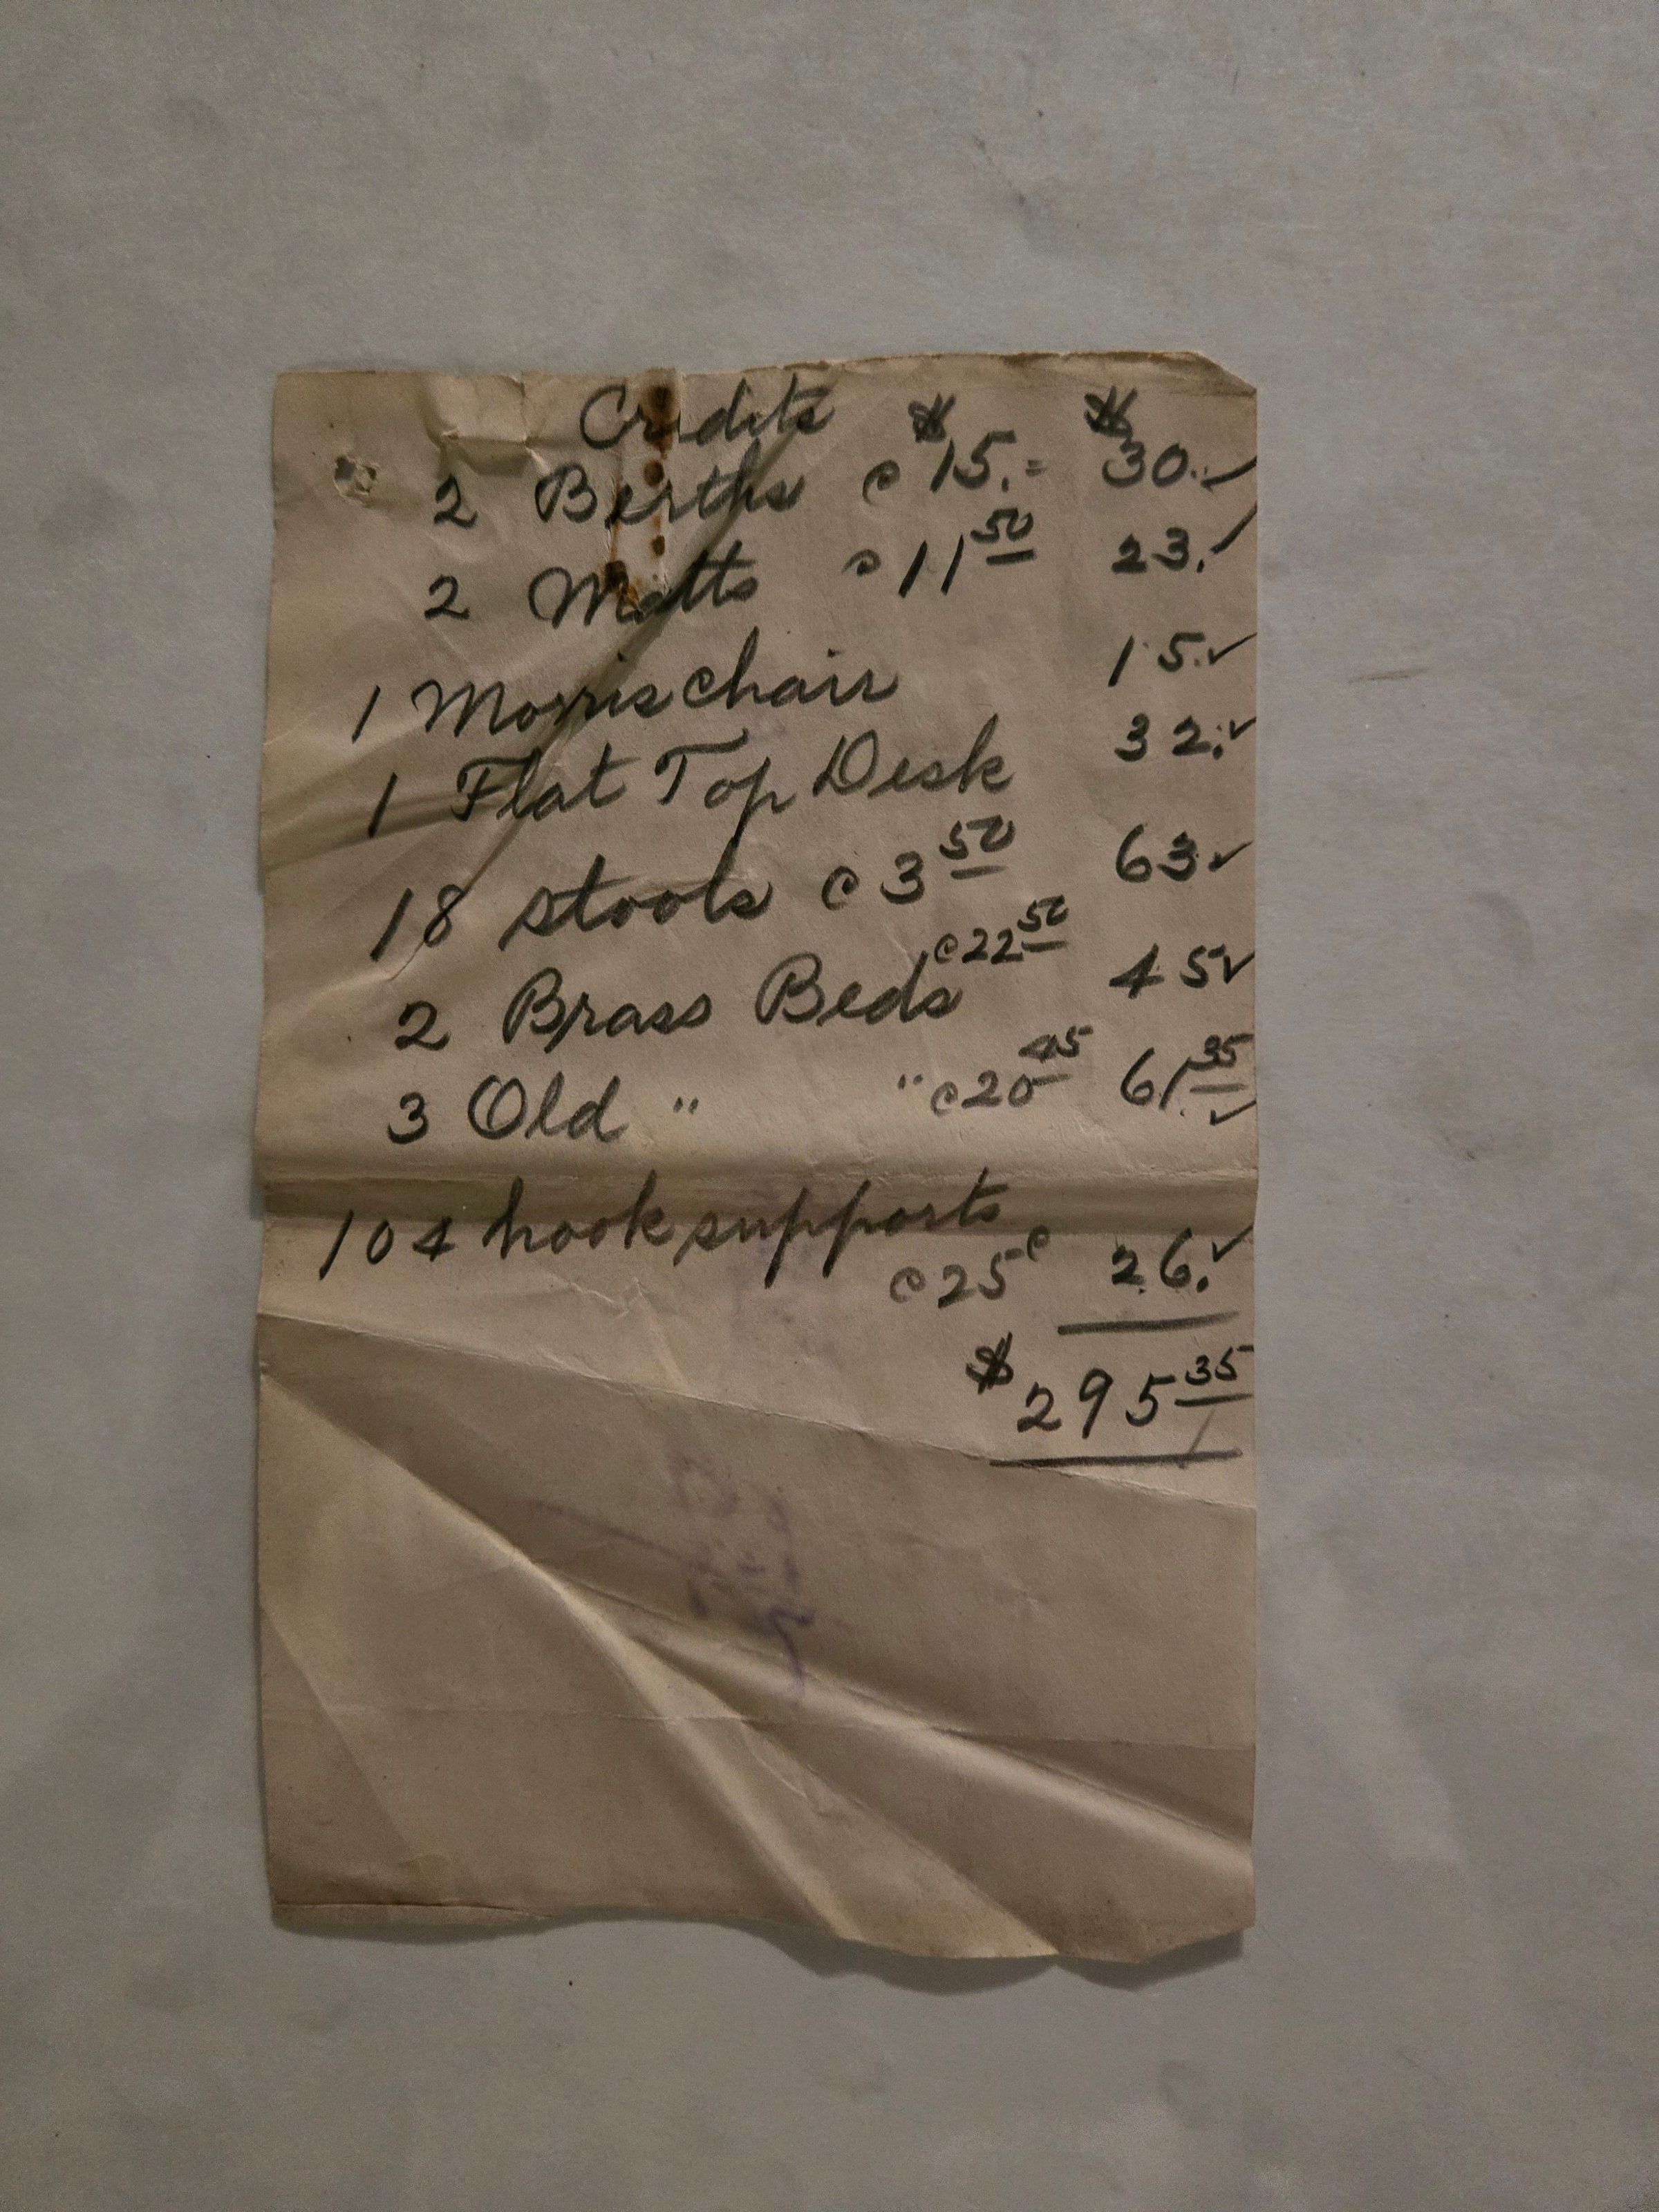 Credits $ $
2 Berths @ 15.= 30.
2 Matts @ 11 50 23.
1 Morris chair 15.
1 Flat Top Desk 32.
18 stools @ 3 50 63
2 Brass Beds @ 22 50 45
3 Old " " @ 20 45 61 35
104 hook supports
@ 25 c 26.
$ 295 35